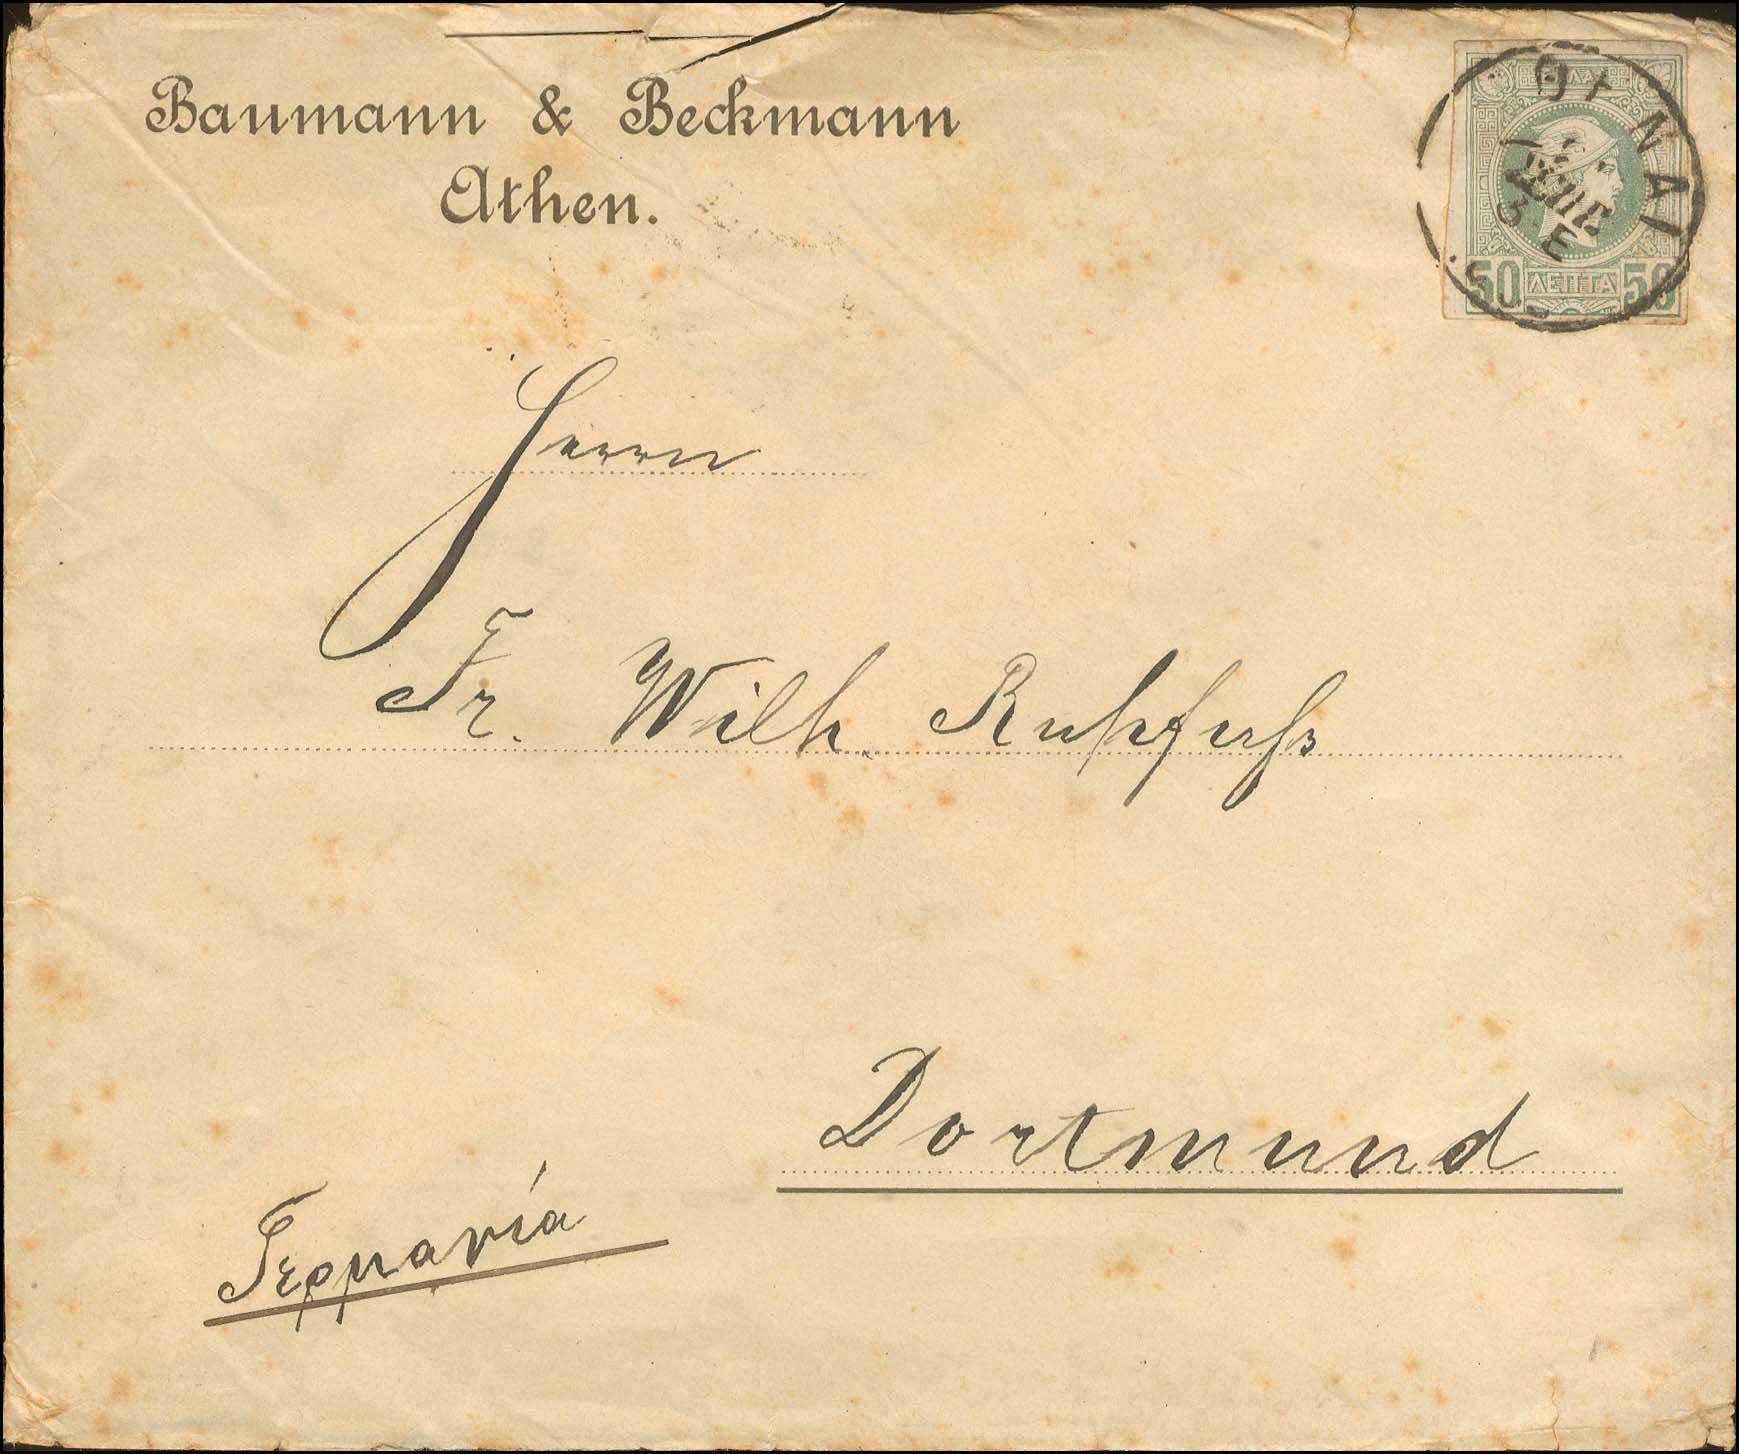 Baumann & Beckmann
Athen.
ΕΛΛΑΣ
50 ΛΕΠΤΑ 50
ΑΘΗΝΑΙ
Herrn
Fr. Wilh. Ruhfuß
Dortmund
Γερμανία